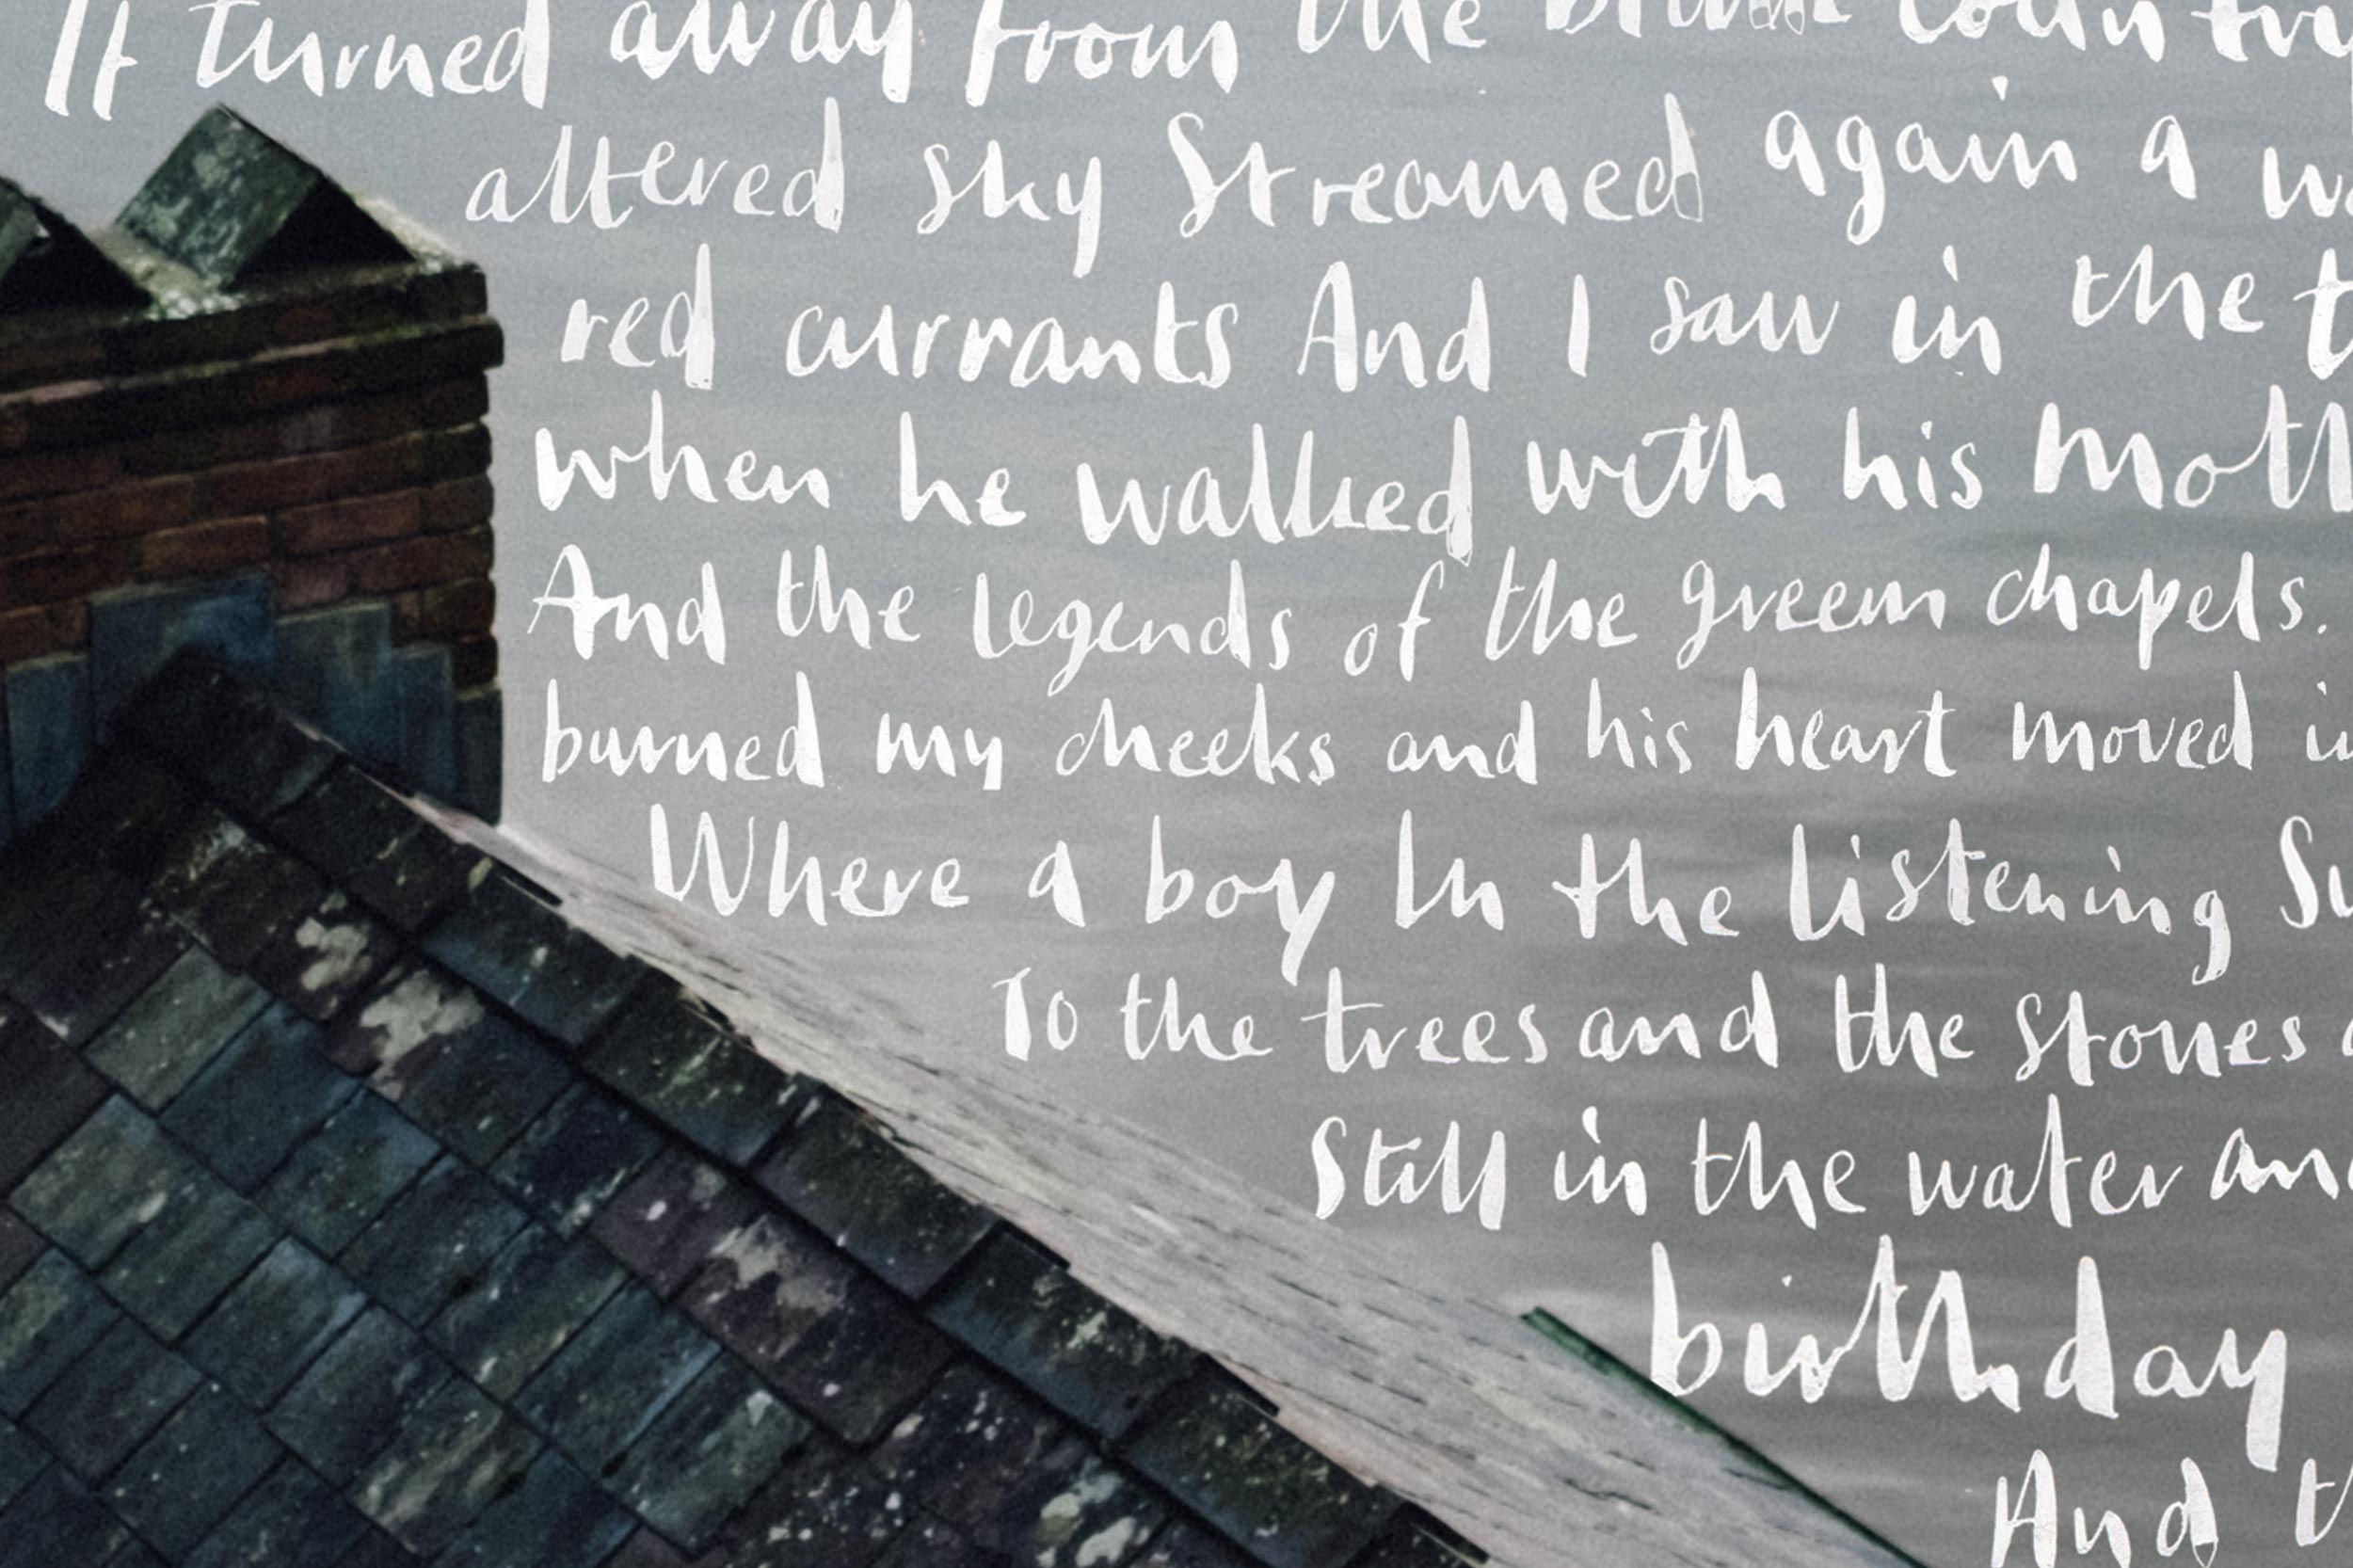 It turned away from the blithe country
altered sky Streamed again a
red currants And I saw in the
when he walked with his
And the legends of the green chapels.
burned my cheeks and his heart moved
Where a boy In the listening
To the trees and the stones
Still in the water
birthday
And